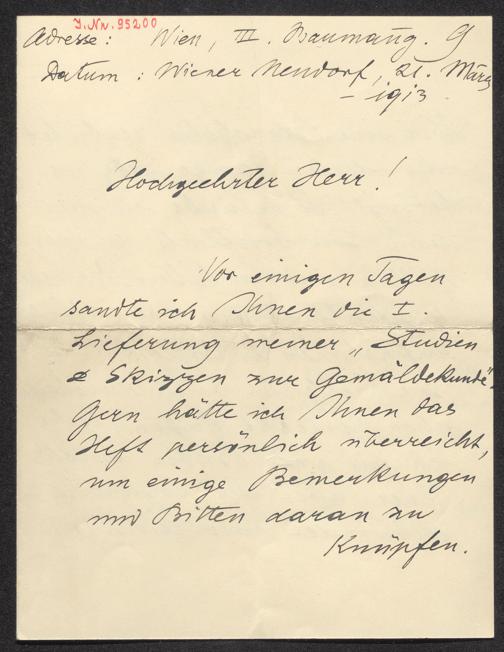 I.Nr. 95200
Adresse: Wien, III. Baumanng. 9
Datum: Wiener Neudorf, 21. März
– 1913
Hochgeehrter Herr!
Vor einigen Tagen
sandte ich Ihnen die I.
Lieferung meiner „Studien
& Skizzen zur Gemäldekunde".
Gern hätte ich Ihnen das
Heft persönlich überreicht,
um einige Bemerkungen
und Bitten daran zu
Knüpfen.